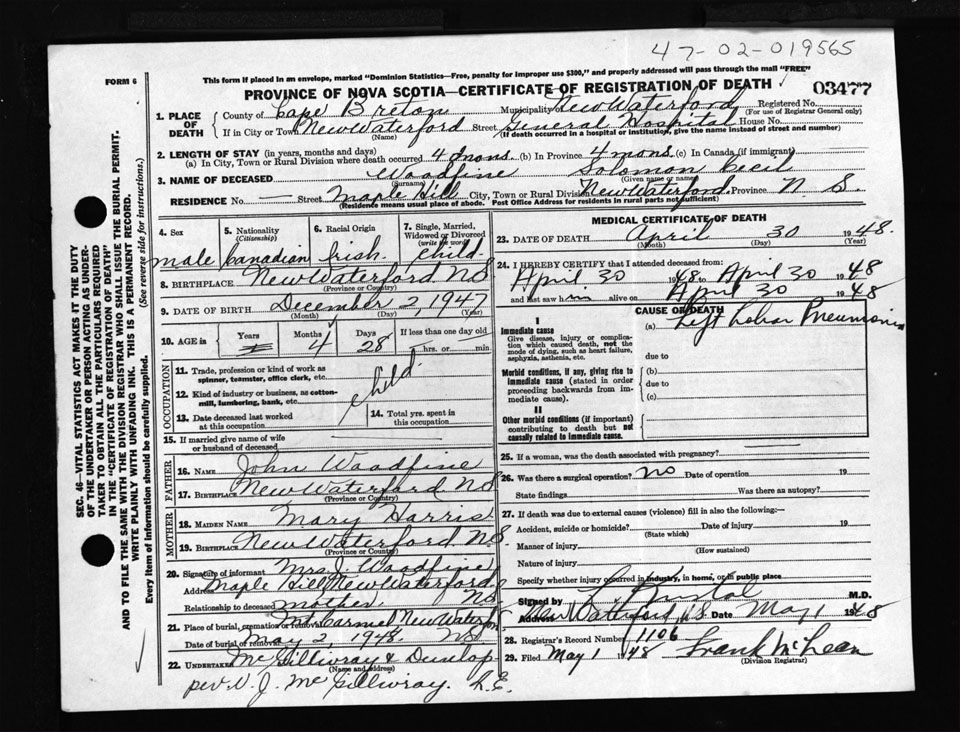 47-02-019565
FORM 6
This form if placed in an envelope, marked "Dominion Statistics—Free, penalty for improper use $300," and properly addressed will pass through the mail "FREE"
PROVINCE OF NOVA SCOTIA—CERTIFICATE OF REGISTRATION OF DEATH
03477
1. PLACE OF DEATH
County of Cape Breton Municipality of New Waterford Registered No.
(For use of Registrar General only)
If in City or Town New Waterford Street General Hospital House No.
(Name) (If death occurred in a hospital or institution, give the name instead of street and number)
2. LENGTH OF STAY (in years, months and days)
(a) In City, Town or Rural Division where death occurred 4 mons. (b) In Province 4 mons. (c) In Canada (if immigrant)
3. NAME OF DECEASED Woodfine Solomon Cecil
(Surname) (Given name or names)
RESIDENCE No. — Street Maple Hill City, Town or Rural Division New Waterford Province N S.
(Residence means usual place of abode. Post Office Address for residents in rural parts not sufficient)
4. Sex
male
5. Nationality
(Citizenship)
Canadian
6. Racial Origin
Irish
7. Single, Married, Widowed or Divorced
(write the word)
child.
8. BIRTHPLACE New Waterford NS
(Province or Country)
9. DATE OF BIRTH December 2, 1947
(Month) (Day) (Year)
10. AGE in Years Months 4 Days 28 If less than one day old
hrs. or min.
OCCUPATION
11. Trade, profession or kind of work as spinner, teamster, office clerk, etc.
12. Kind of industry or business, as cotton-mill, lumbering, bank, etc.
child.
13. Date deceased last worked at this occupation
14. Total yrs. spent in this occupation
15. If married give name of wife or husband of deceased
FATHER
16. NAME John Woodfine
17. BIRTHPLACE New Waterford NS
(Province or Country)
MOTHER
18. MAIDEN NAME Mary Harris
19. BIRTHPLACE New Waterford. NS
(Province or Country)
20. Signature of informant Mrs. J. Woodfine
Address Maple Hill New Waterford
Relationship to deceased mother. NS
21. Place of burial, cremation or removal Mt Carmel New Waterford
Date of burial or removal May 2 1948 NS
22. UNDERTAKER McGillivray & Dunlop
(Name and Address)
per. V. J. McGillivray. L.E.
MEDICAL CERTIFICATE OF DEATH
23. DATE OF DEATH April 30 1948.
(Month) (Day) (Year)
24. I HEREBY CERTIFY that I attended deceased from:
April 30 1948 to April 30 1948
and last saw him alive on April 30 1948
CAUSE OF DEATH
I
Immediate cause
Give disease, injury or complication which caused death, not the mode of dying, such as heart failure, asphyxia, asthenia, etc.
(a) Left Lobar Pneumonia
due to
Morbid conditions, if any, giving rise to immediate cause (stated in order proceeding backwards from immediate cause).
(b)
due to
(c)
II
Other morbid conditions (if important) contributing to death but not causally related to immediate cause.
25. If a woman, was the death associated with pregnancy?
26. Was there a surgical operation? no Date of operation 19
State findings Was there an autopsy?
27. If death was due to external causes (violence) fill in also the following:—
Accident, suicide or homicide? Date of injury 19
(State which)
Manner of injury
(How sustained)
Nature of injury
Specify whether injury occurred in industry, in home, or in public place
Signed by M.D.
Address New Waterford, NS Date May 1 1948
28. Registrar's Record Number 1106
29. Filed May 1 1948 Frank McLean
(Division Registrar)
SEC. 46—VITAL STATISTICS ACT MAKES IT THE DUTY
OF THE UNDERTAKER OR PERSON ACTING AS UNDER-
TAKER TO OBTAIN ALL THE PARTICULARS REQUIRED
IN THE "CERTIFICATE OF REGISTRATION OF DEATH"
AND TO FILE THE SAME WITH THE DIVISION REGISTRAR WHO SHALL ISSUE THE BURIAL PERMIT.
WRITE PLAINLY WITH UNFADING INK. THIS IS A PERMANENT RECORD.
Every item of information should be carefully supplied. (See reverse side for instructions.)